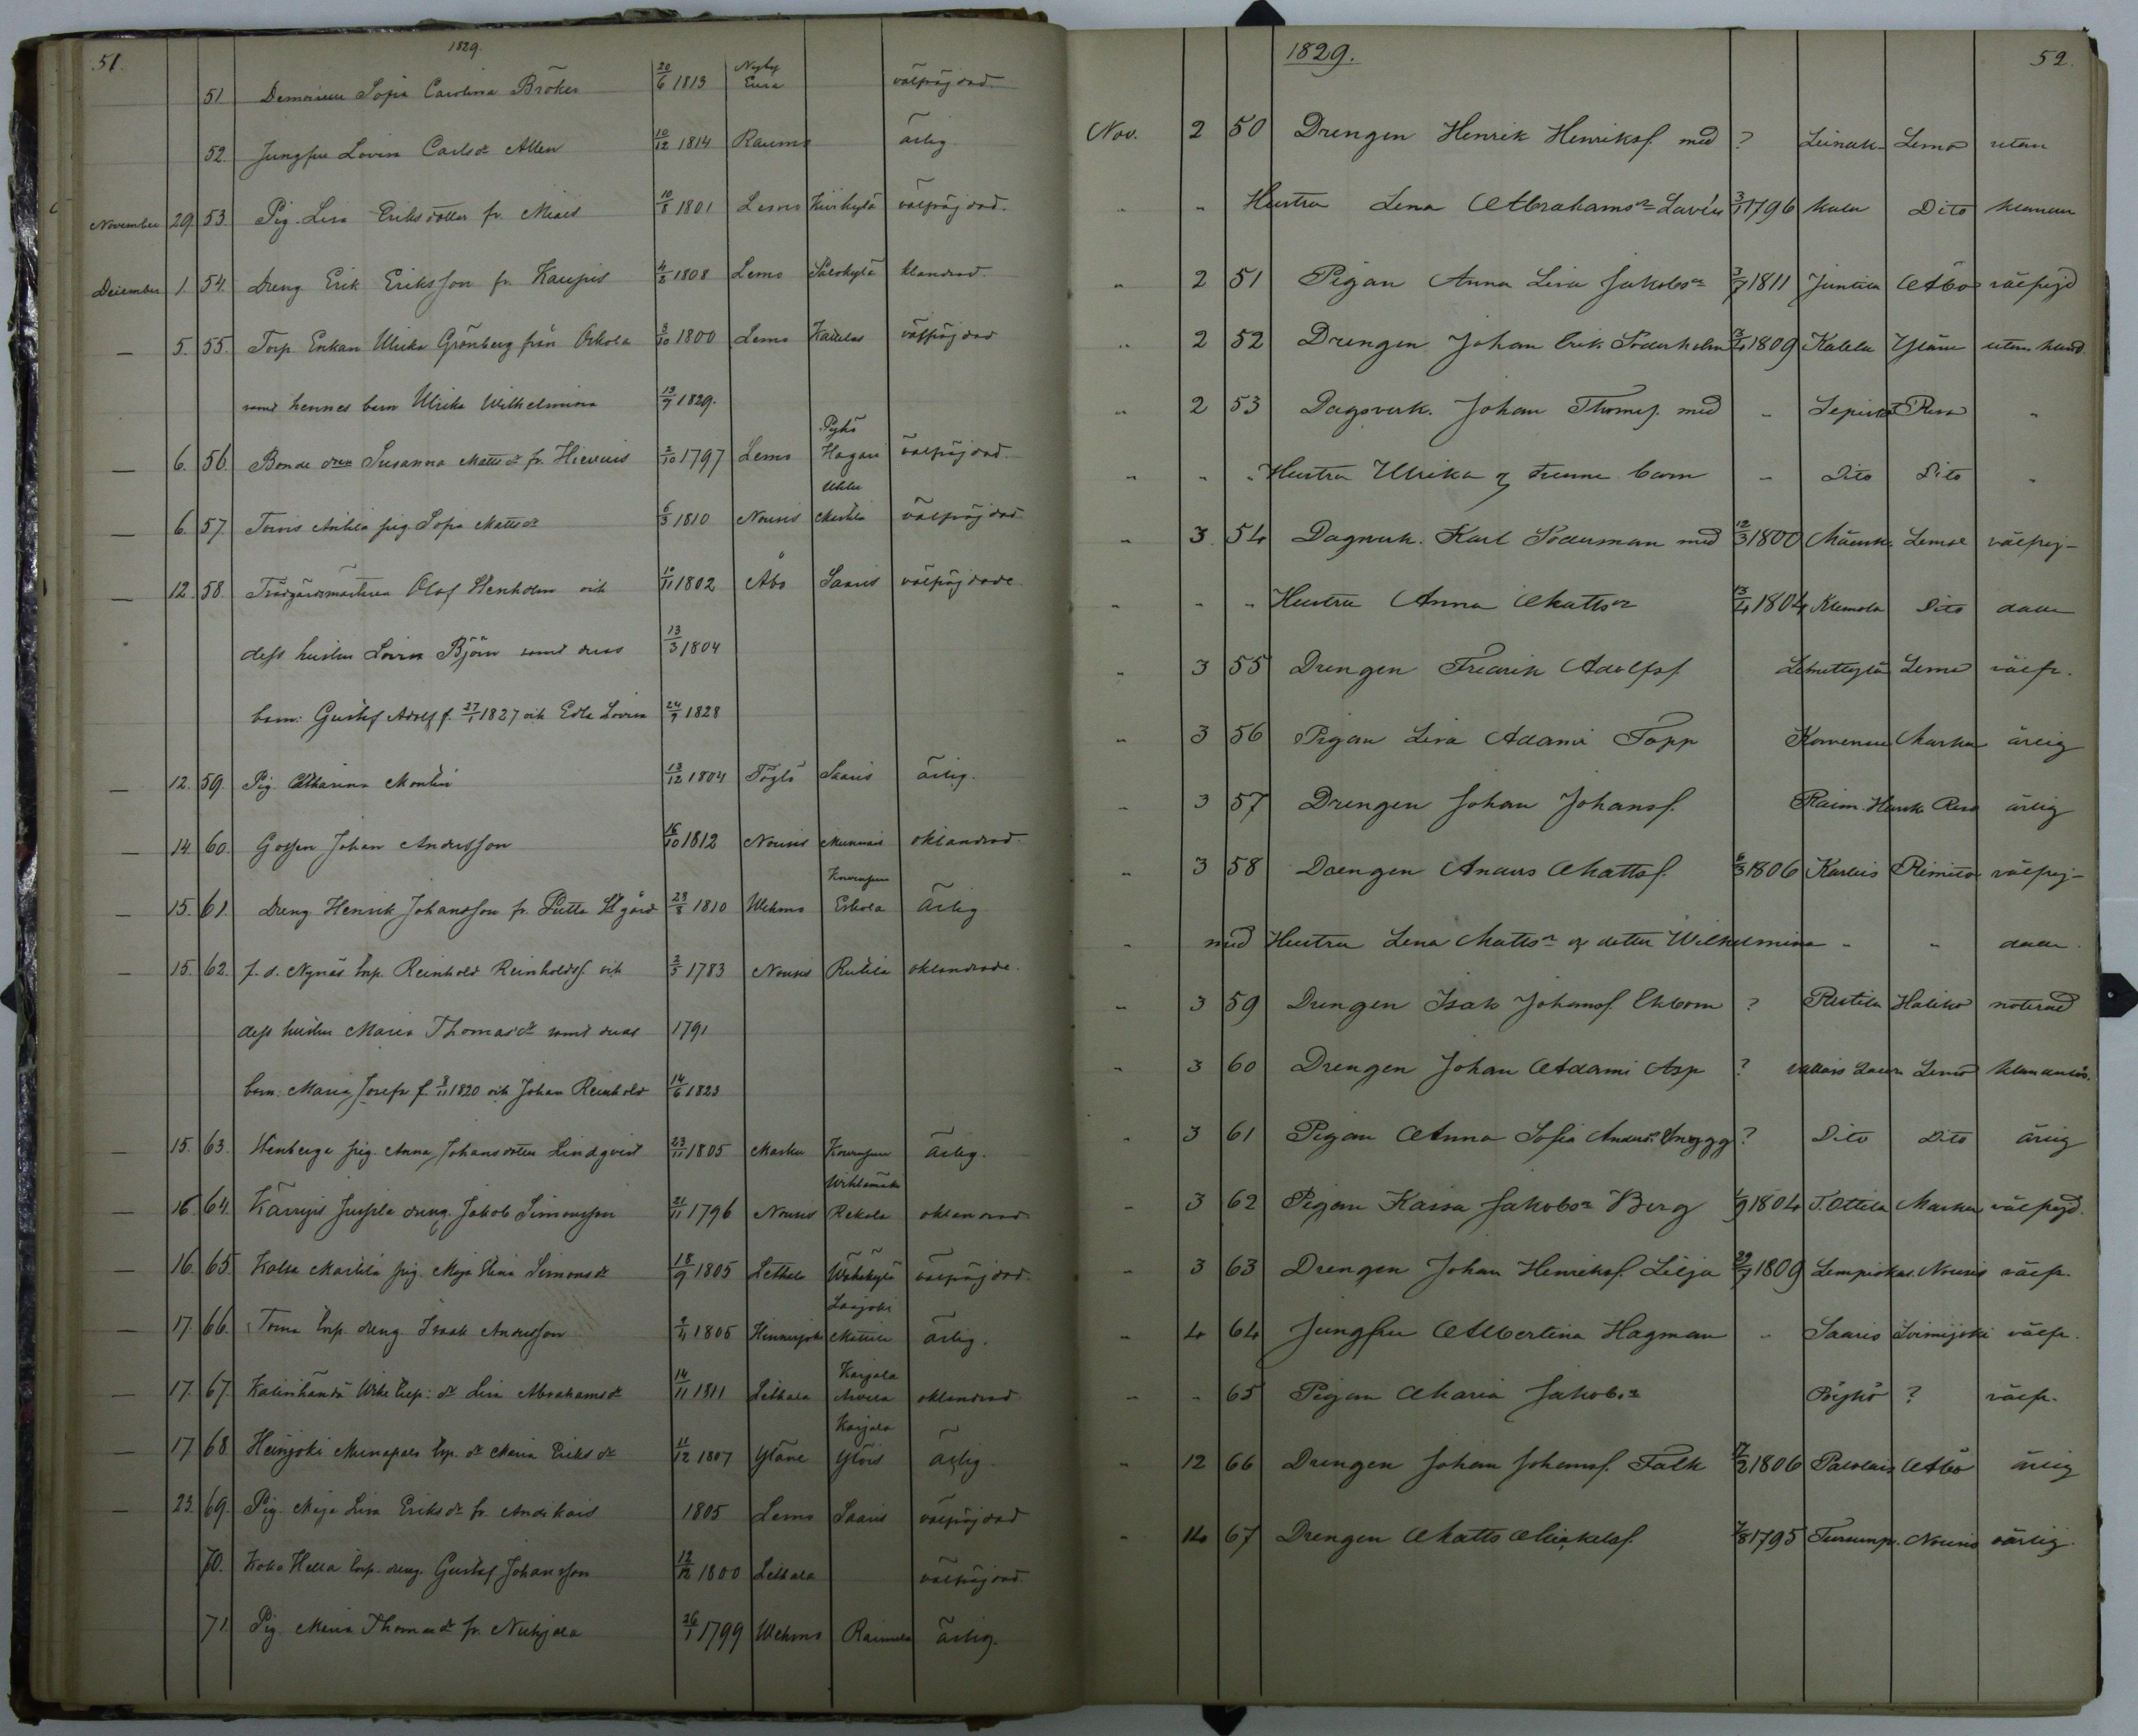 51. 1829.
51 Demoiselle Sofia Carolina Bröker 20/6 1813 Nykyrk Eura välfräjdad.
52. Jungfru Lovisa Carlsdr Allen 10/12 1814 Raumo ärlig.
November 29. 53. Pig. Lisa Eriksdotter fr. Miais 10/8 1801 Lemo Kürkylä välfräjdad.
December 1. 54. Dreng Erik Eriksson fr. Kaupis 4/2 1808 Lemo Palokylä klandrad.
— 5. 55. Torp. Enkan Ulrika Grönberg från Orkola 3/10 1800 Lemo Kaitelas välfräjdad
samt hennes barn Ulrika Wilhelmina 13/9 1829.
— 6. 56. Bonde drn Susanna Mattsdr fr. Hiervois 2/10 1797 Lemo Pyhö Hagari välfräjdad.
— 6. 57. Torvis Anhila pig. Sofia Mattsdr 6/3 1810 Nousis Uhlu Markila välfräjdad
— 12. 58. Trädgårdsmästaren Olof Stenholm och 10/11 1802 Åbo Saaris välfräjdade
dess hustru Lovisa Björn samt deras 13/3 1804
barn: Gustaf Adolf f. 27/1 1827 och Edla Lovisa 24/9 1828
— 12. 59. Pig. Catharina Montin 13/12 1804 Föglö Saaris ärlig.
— 14. 60. Gossen Johan Andersson 16/10 1812 Nousis Munnais oklandrad.
— 15. 61. Dreng Henrik Johansson fr. Putta Stgård 28/8 1810 Wehmo Eskola ärlig
— 15. 62. f. d. Nynäs torp. Reinhold Reinholdss. och 2/5 1783 Nousis Rutila oklandrade.
dess hustru Maria Thomasdr samt deras 1791
barn: Maria Josefa f. 3/11 1820 och Johan Reinhold 14/6 1823
— 15. 63. Stenberga pig. Anna Johansdotter Lindqvist 23/11 1805 Masku ärlig.
— 16. 64. Kärryis Juspila dreng. Jakob Simonsson 21/11 1796 Nousis Rekola oklandrad
— 16. 65 Kalsa Markila pig. Maja Stina Simonsdr 18/9 1805 Letala Wähäkylä välfräjdad.
— 17. 66. Torna torp. dreng. Isaak Andersson 2/4 1805 Hinnerjoki Laajoki Mattila ärlig.
— 17. 67. Kalinhändä Wike torp: dr Lisa Abrahamsdr 14/11 1811 Letala Karjala Arvela oklandrad
— 17 68 Heinjoki Munapelo torp. dr Maria Eriksdr 11/12 1807 Yläne Karjala Ylöis ärlig
— 23. 69. Pig. Maja Lisa Eriksdr fr. Andikais 1805 Lemo Saaris välfräjdad
70. Koko Hella torp. dreng. Gustaf Johansson 12/12 1800 Letala välfräjdad.
71. Pig. Maria Thomasdr fr. Nuhjala 26/1 1799 Wehmo Raimela ärlig.
1829. 52.
Nov. 2 50 Drengen Henrik Henrikss. med ? Leinak- Lemo utan
" " Hustru Lena Abrahamsdr Lavén 3/11 1796 kala Dito klander
" 2 51 Pigan Anna Lisa Jakobsdr 3/7 1811 Juntila Åbo välfrejd
" 2 52 Drengen Johan Erik Söderholm 3/4 1809 Kalela Yläne utan kland.
" 2 53 Dagsverk. Johan Thomss. med " Lepistö Reso "
" " " Hustru Ulrika & trenne barn " Dito Dito "
" 3. 54 Dagsverk. Karl Söderman med 12/3 1800 Mäensk. Lemoe välfrej-
" " " Hustru Anna Mattsdr 13/4 1804 Klemola Dito dade
" 3 55 Drengen Fredrik Adolfss. Lemuttkylä Lemo välfr.
" 3 56 Pigan Lisa Adami Topp Korvensu Masku ärlig
" 3 57 Drengen Johan Johanss. Raim. Hurk Reso ärlig
" 3 58 Drengen Anders Mattss. 6/3 1806 Karluis Rimito välfrej-
" med Hustru Lena Mattsdr & dotter Wilhelmina " " dade.
" 3 59 Drengen Isak Johanss. Ekbom ? Rutila Haliko noterad
" 3 60 Drengen Johan Adami Asp ? Lemo klanderlös.
" 3 61 Pigan Anna Sofia Andersdr ? Dito Dito ärlig
" 3 62 Pigan Kaisa Jakobsdr Berg 1/9 1804 T. Ottila Masku välfrejd.
" 3 63 Drengen Johan Henrikss. Lilja 29/7 1809 Lempiskas. Nousis välfr.
" 4 64 Jungfru Albertina Hagman " Saaris Loimijoki välfr.
" " 65 Pigan Maria Jakobsdr Pöykö ? välfr.
" 12 66 Drengen Johan Johanss. Falk 17/2 1806 Palolais Åbo ärlig
" 14 67 Drengen Matts Mickelss. 7/8 1795 Nousis ärlig.